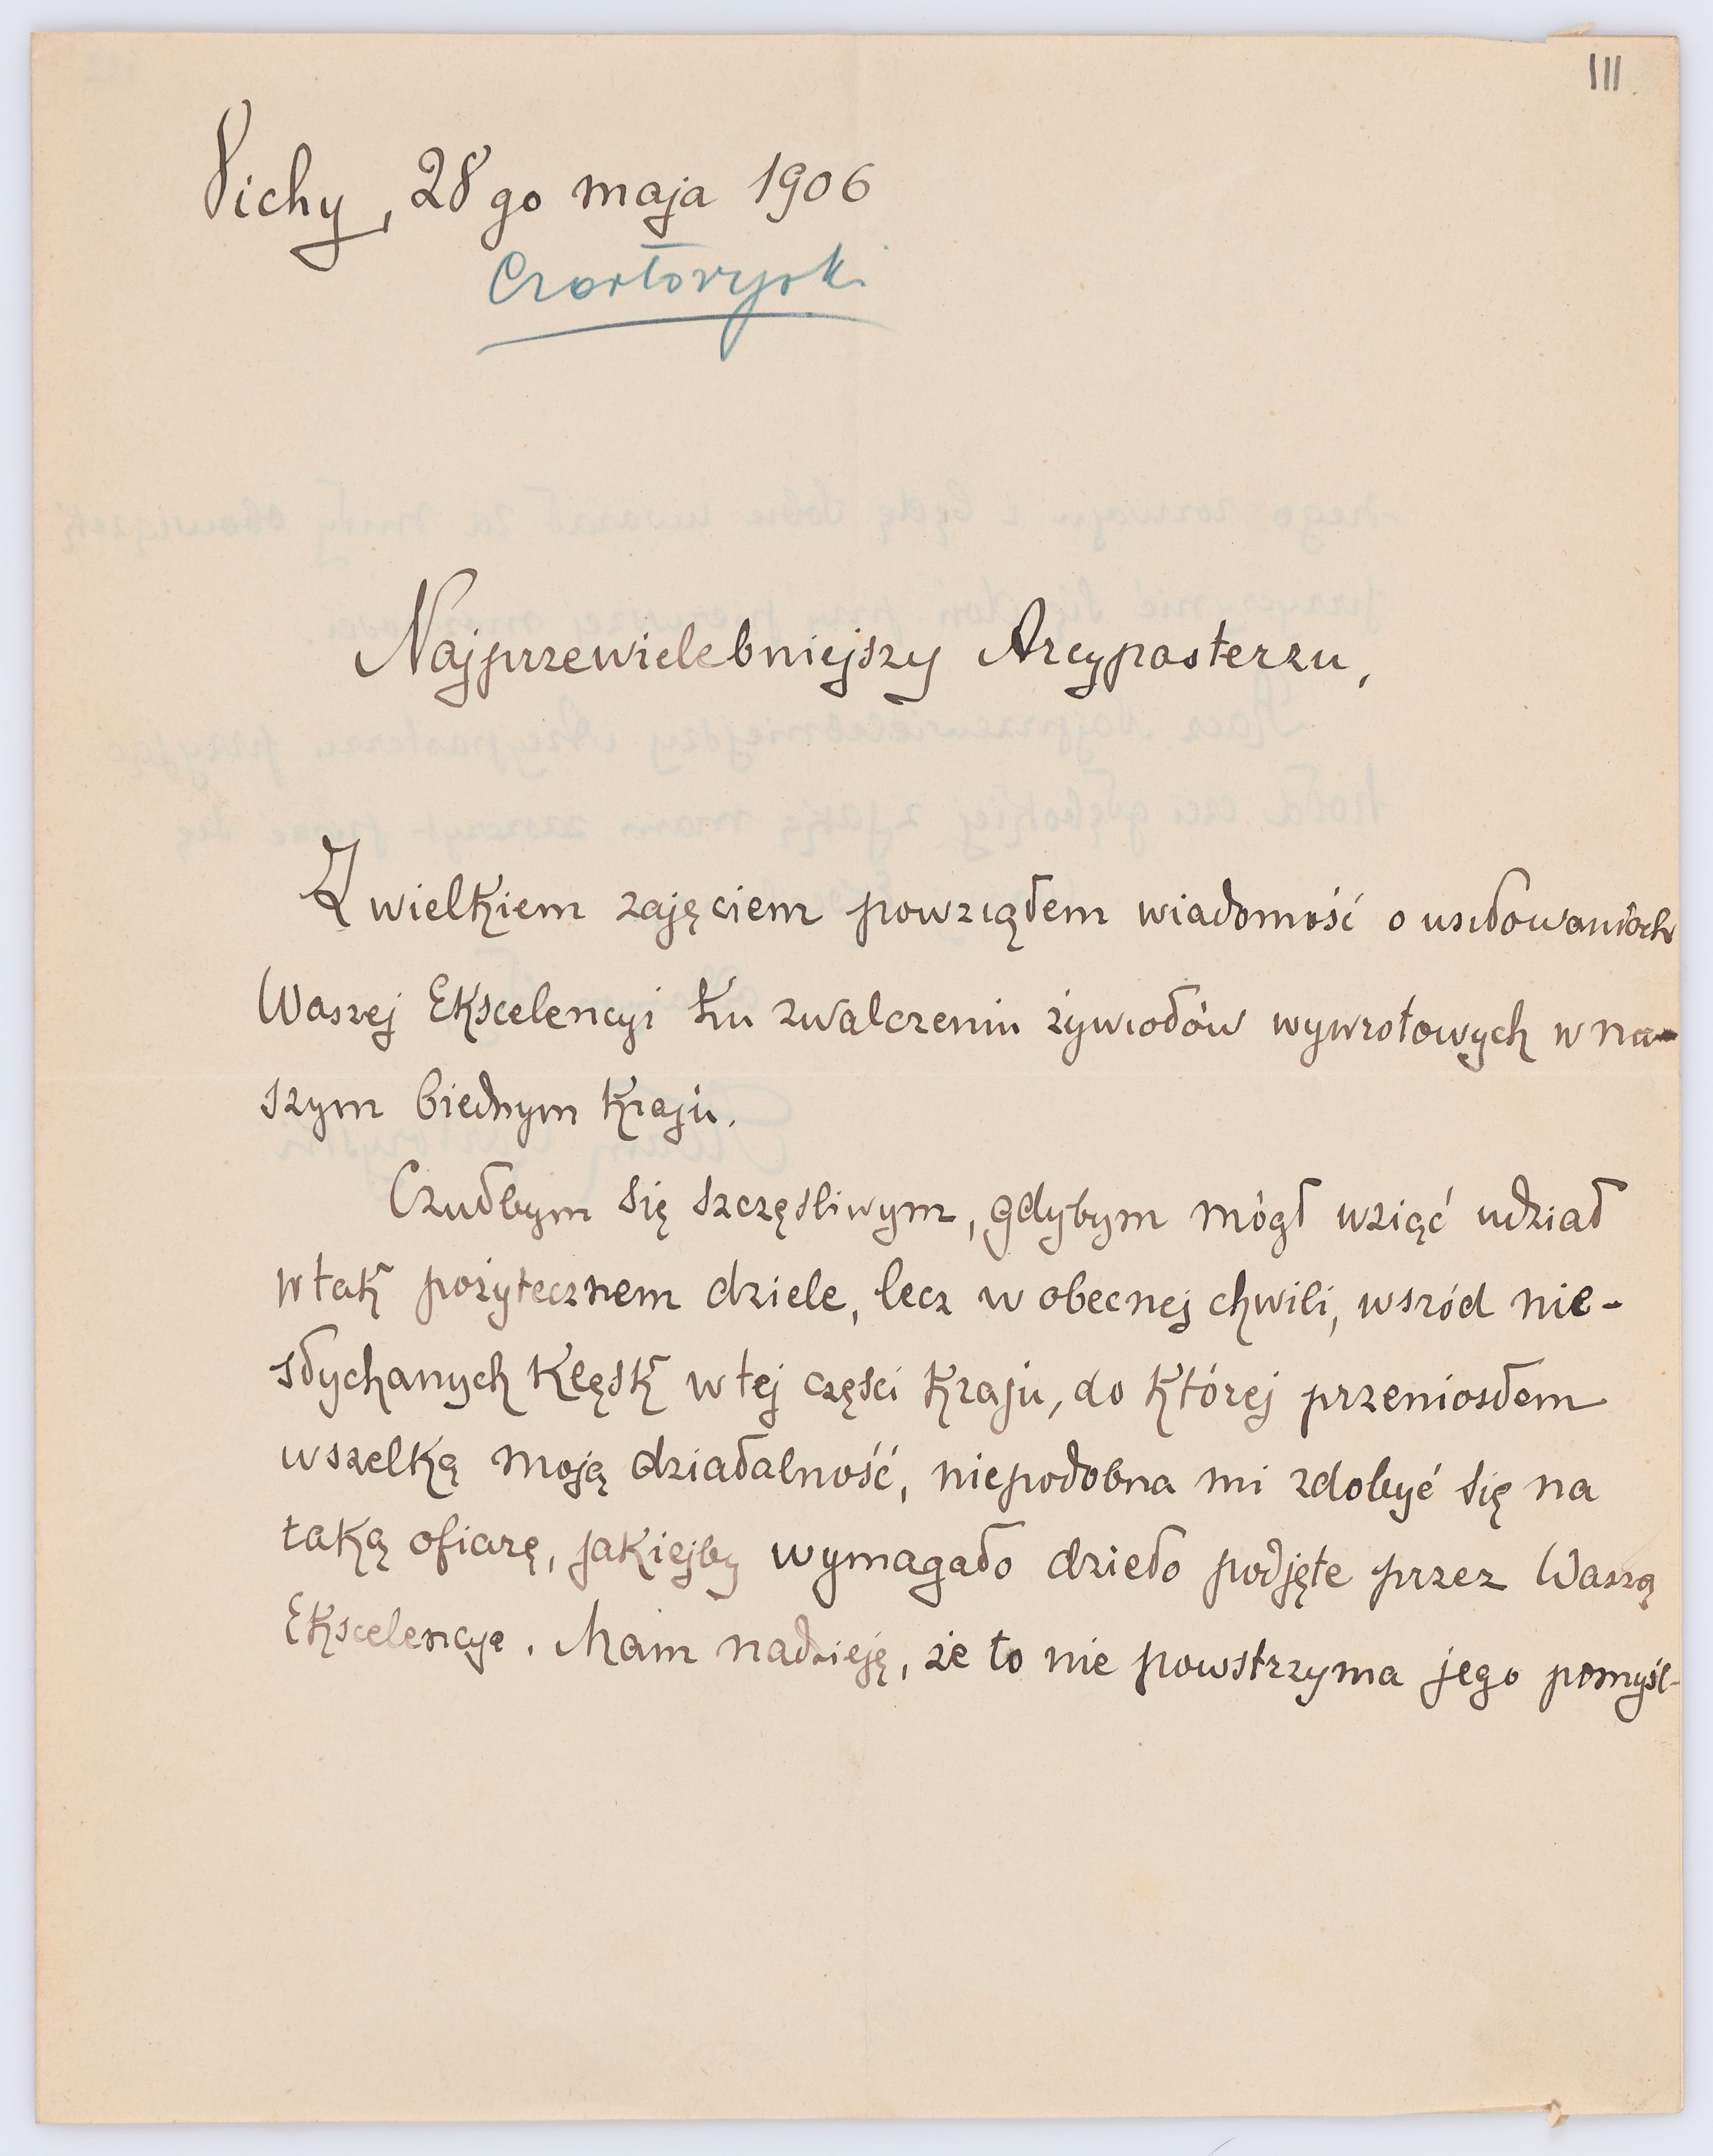 111
Vichy, 28go maja 1906
Czartoryski
Najprzewielebniejszy Arcypasterzu,
Z wielkiem zajęciem powziąłem wiadomość o usiłowaniach
Waszej Ekscelencyi ku zwalczeniu żywiołów wywrotowych w na-
szym biednym kraju.
Czułbym się szczęśliwym, gdybym mógł wziąć udział
w tak pożytecznem dziele, lecz w obecnej chwili, wsród nie-
słychanych klęsk w tej części kraju, do której przeniosłem
wszelką moją działalność, niepodobna mi zdobyć się na
taką ofiarę, jakiejby wymagało dzieło podjęte przez Waszą
Ekscelencye. Mam nadzieję, że to nie powstrzyma jego pomyśl-